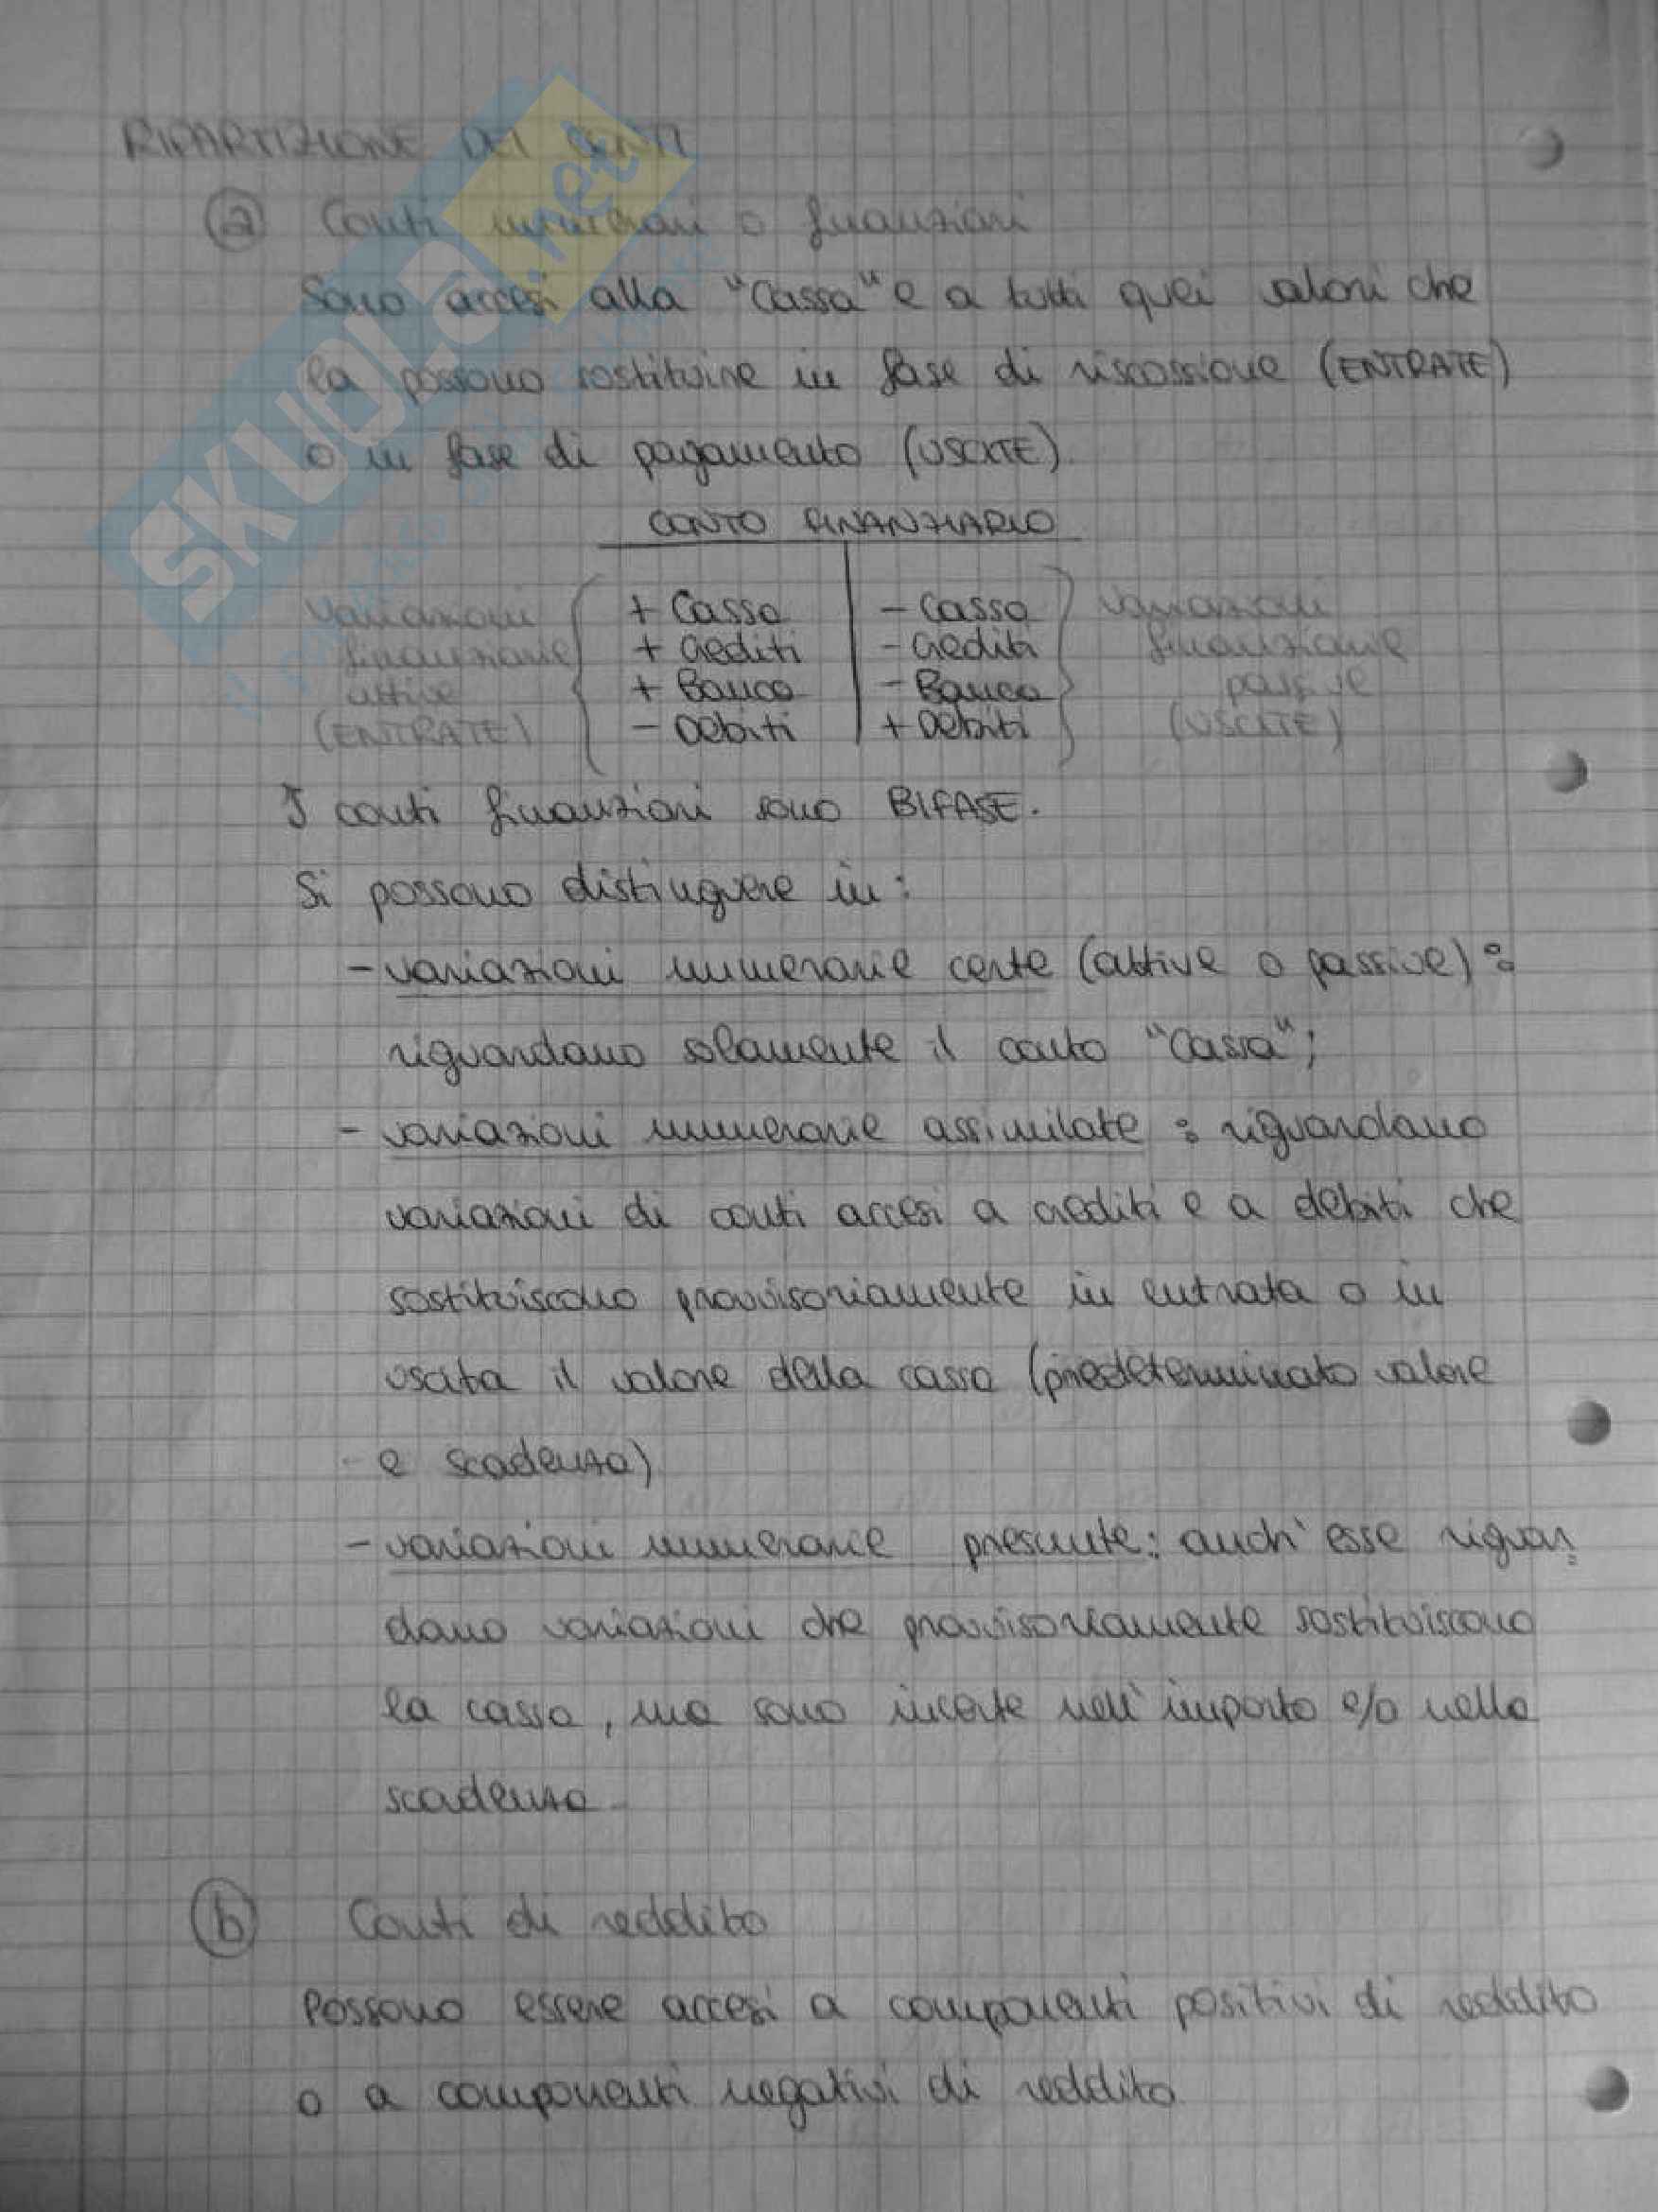 RIPARTIZIONE DEI CONTI
a Conti numerari o finanziari
Sono accesi alla "Cassa" e a tutti quei valori che
la possono sostituire in fase di riscossione (ENTRATE)
o in fase di pagamento (USCITE).
CONTO FINANZIARIO
variazioni + Cassa - Cassa variazioni
finanziarie + Crediti - Crediti finanziarie
attive + Banca - Banca passive
(ENTRATE) - Debiti + Debiti (USCITE)
I conti finanziari sono BIFASE.
Si possono distinguere in:
- variazioni numerarie certe (attive o passive):
riguardano solamente il conto "Cassa";
- variazioni numerarie assimilate: riguardano
variazioni di conti accesi a crediti e a debiti che
sostituiscono provvisoriamente in entrata o in
uscita il valore della cassa (predeterminato valore
e scadenza)
- variazioni numerarie presunte: anch'esse riguar=
dano variazioni che provvisoriamente sostituiscono
la cassa, ma sono incerte nell'importo e/o nella
scadenza
b Conti di reddito
Possono essere accesi a componenti positivi di reddito
o a componenti negativi di reddito.
SKUOLA.net